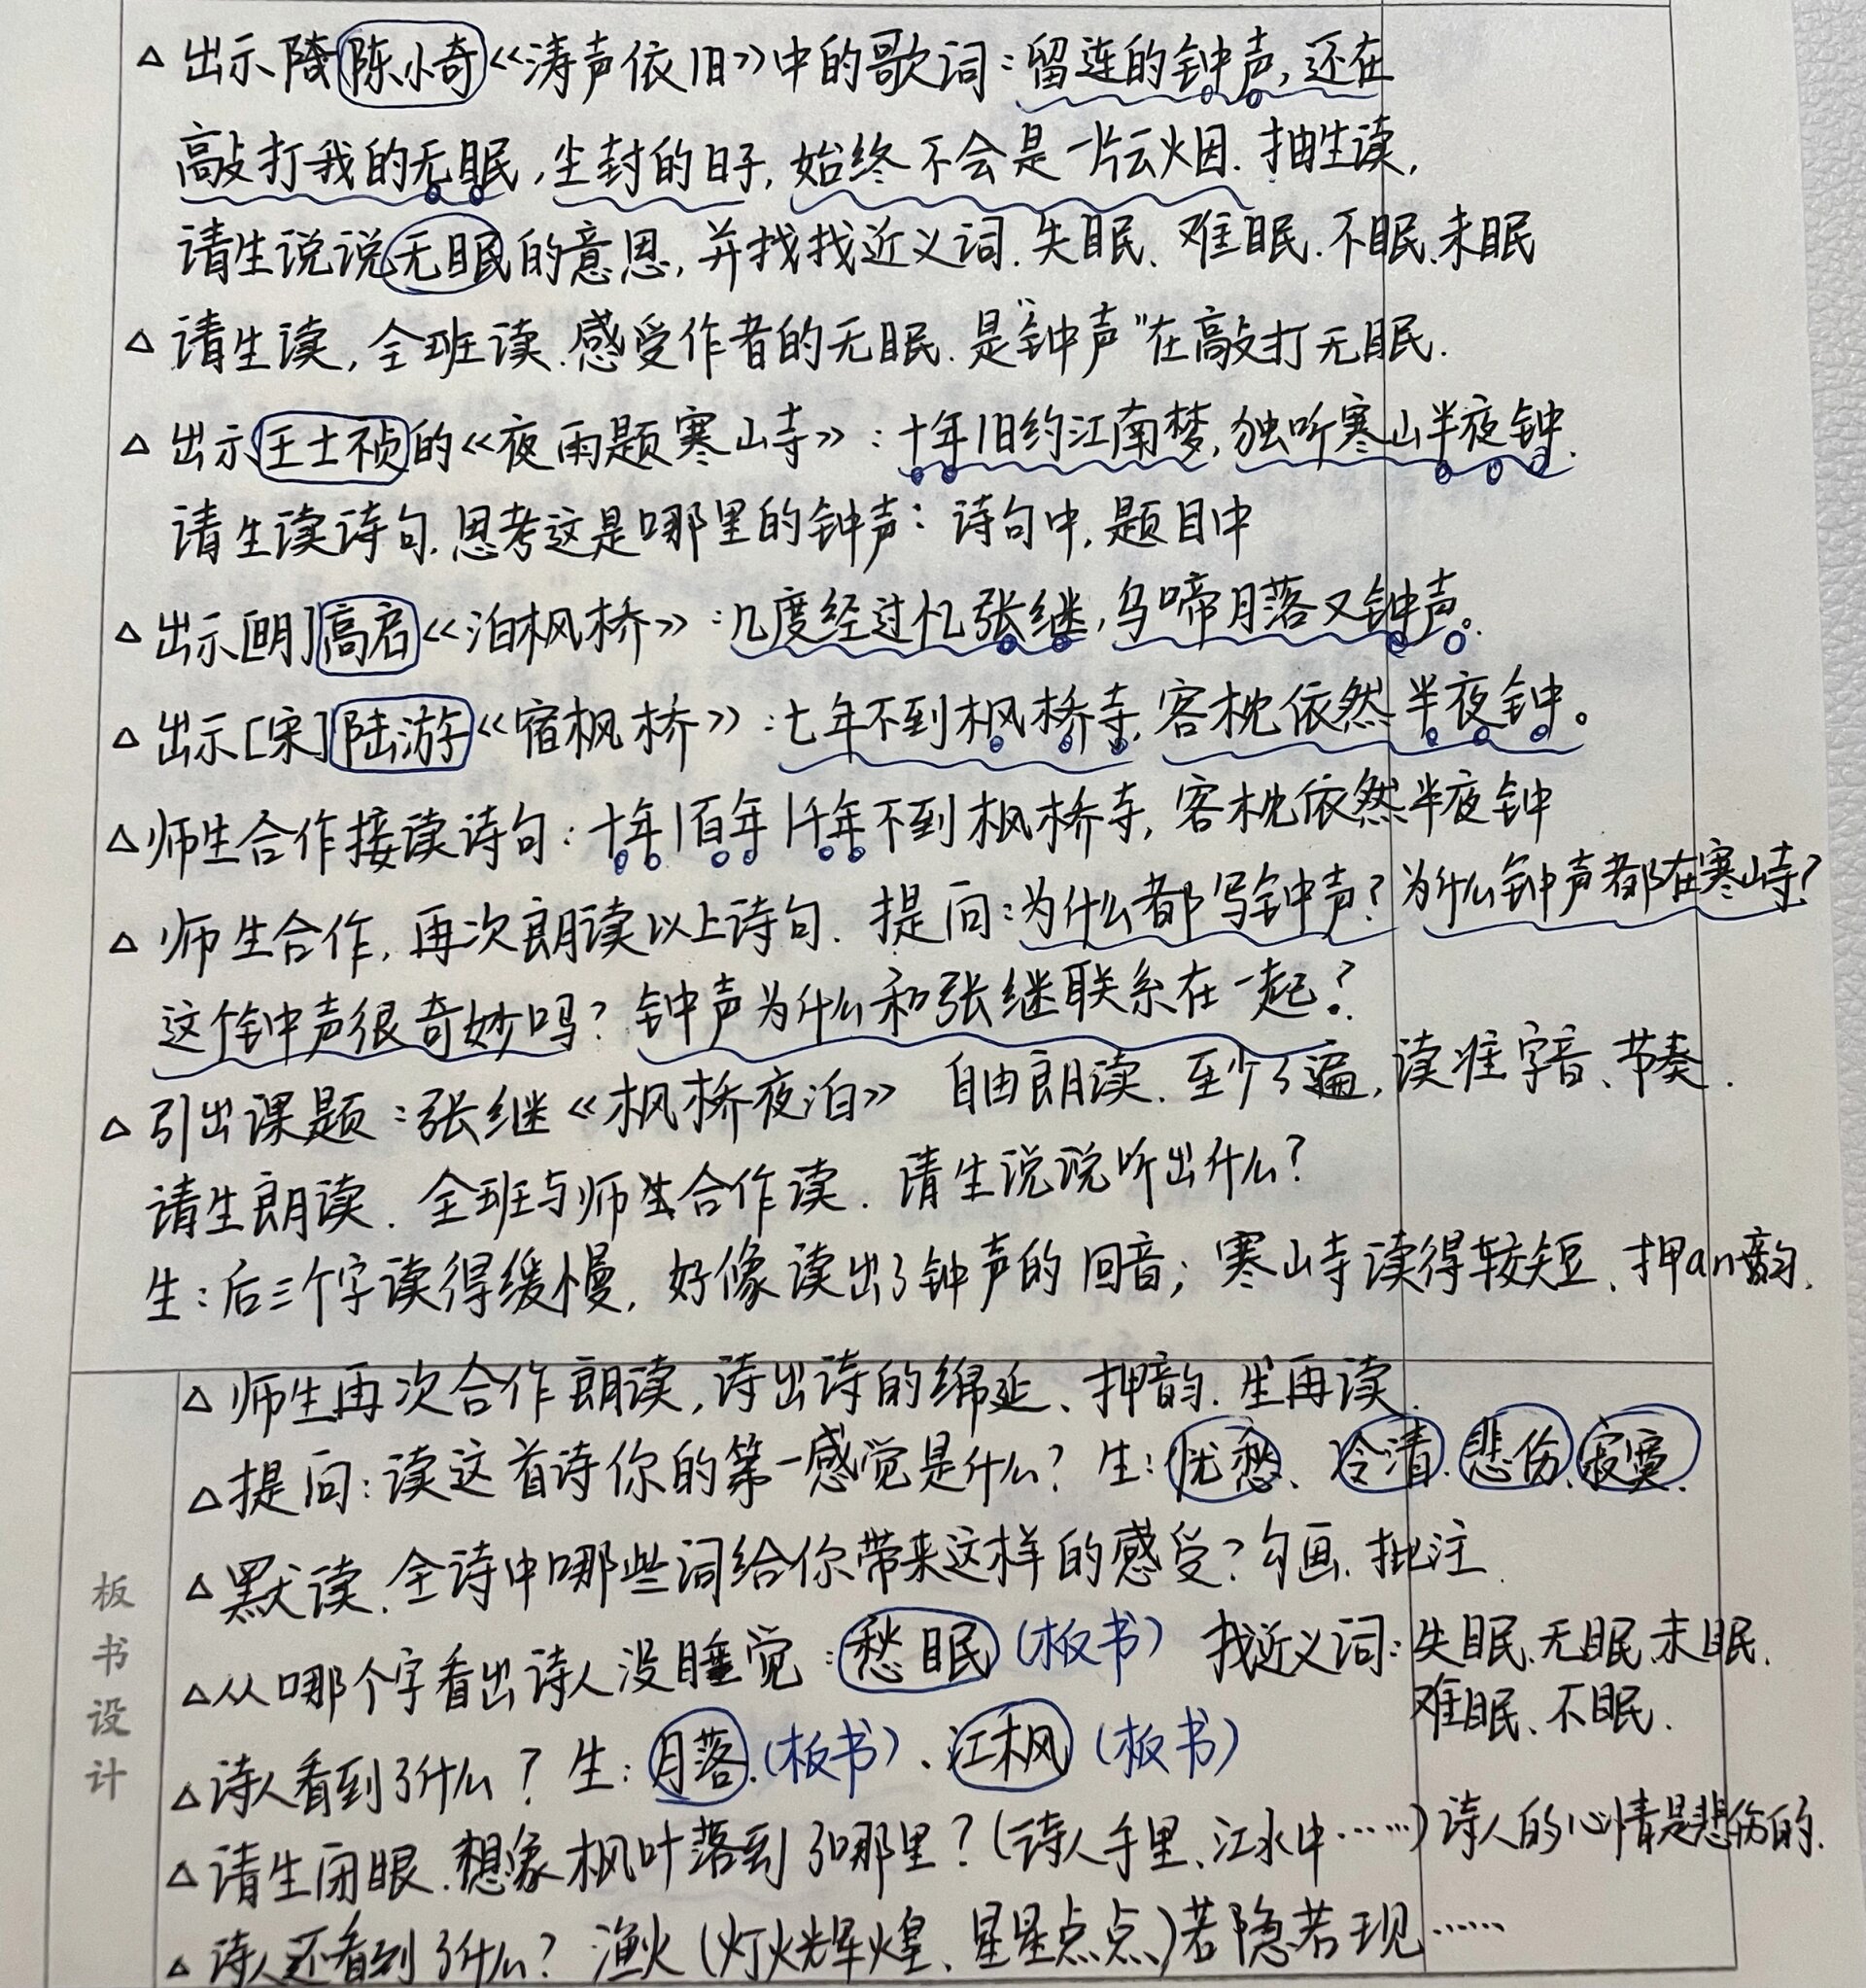 △ 出示陈小奇《涛声依旧》中的歌词：留连的钟声，还在
敲打我的无眠，尘封的日子，始终不会是一片云烟．抽生读，
请生说说无眠的意思，并找找近义词．失眠、难眠．不眠．未眠
△ 请生读，全班读．感受作者的无眠．是“钟声”在敲打无眠．
△ 出示王士祯的《夜雨题寒山寺》：十年旧约江南梦，独听寒山半夜钟．
请生读诗句．思考这是哪里的钟声：诗句中，题目中
△ 出示[明]高启《泊枫桥》：几度经过忆张继，乌啼月落又钟声。
△ 出示[宋]陆游《宿枫桥》：七年不到枫桥寺，客枕依然半夜钟。
△ 师生合作接读诗句：十年|百年|千年不到枫桥寺，客枕依然半夜钟
△ 师生合作，再次朗读以上诗句．提问：为什么都写钟声？为什么钟声都在寒山寺？
这个钟声很奇妙吗？钟声为什么和张继联系在一起？
△ 引出课题：张继《枫桥夜泊》 自由朗读．至少3遍，读准字音、节奏．
请生朗读．全班与师生合作读．请生说说听出什么？
生：后三个字读得缓慢，好像读出了钟声的回音；寒山寺读得较短、押an韵．
△ 师生再次合作朗读，读出诗的绵延、押韵．生再读．
△ 提问：读这首诗你的第一感觉是什么？生：忧愁、冷清．悲伤、寂寞．
△ 默读．全诗中哪些词给你带来这样的感受？勾画．批注．
△ 从哪个字看出诗人没睡觉：愁眠（板书） 找近义词：失眠．无眠．未眠．
难眠、不眠．
△ 诗人看到了什么？生：月落．（板书）、江枫（板书）
△ 请生闭眼．想象枫叶落到了哪里？（诗人手里、江水中……）诗人的心情是悲伤的．
△ 诗人还看到了什么？渔火（灯火辉煌、星星点点）若隐若现……
板书设计